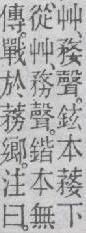 艸、務聲。鉉本蓩下
從艸、務聲。鍇本無
傳。戰於蓩鄉。注曰。